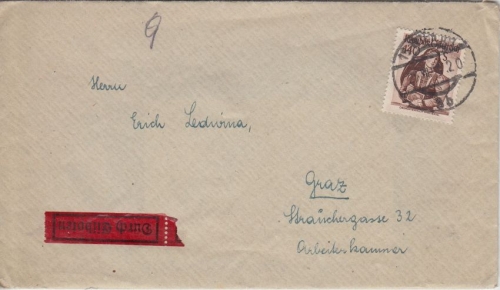 9
Herrn
Erich Ledwina,
Graz
Strauchergasse 32
Arbeiterkammer
Durch Eilboten